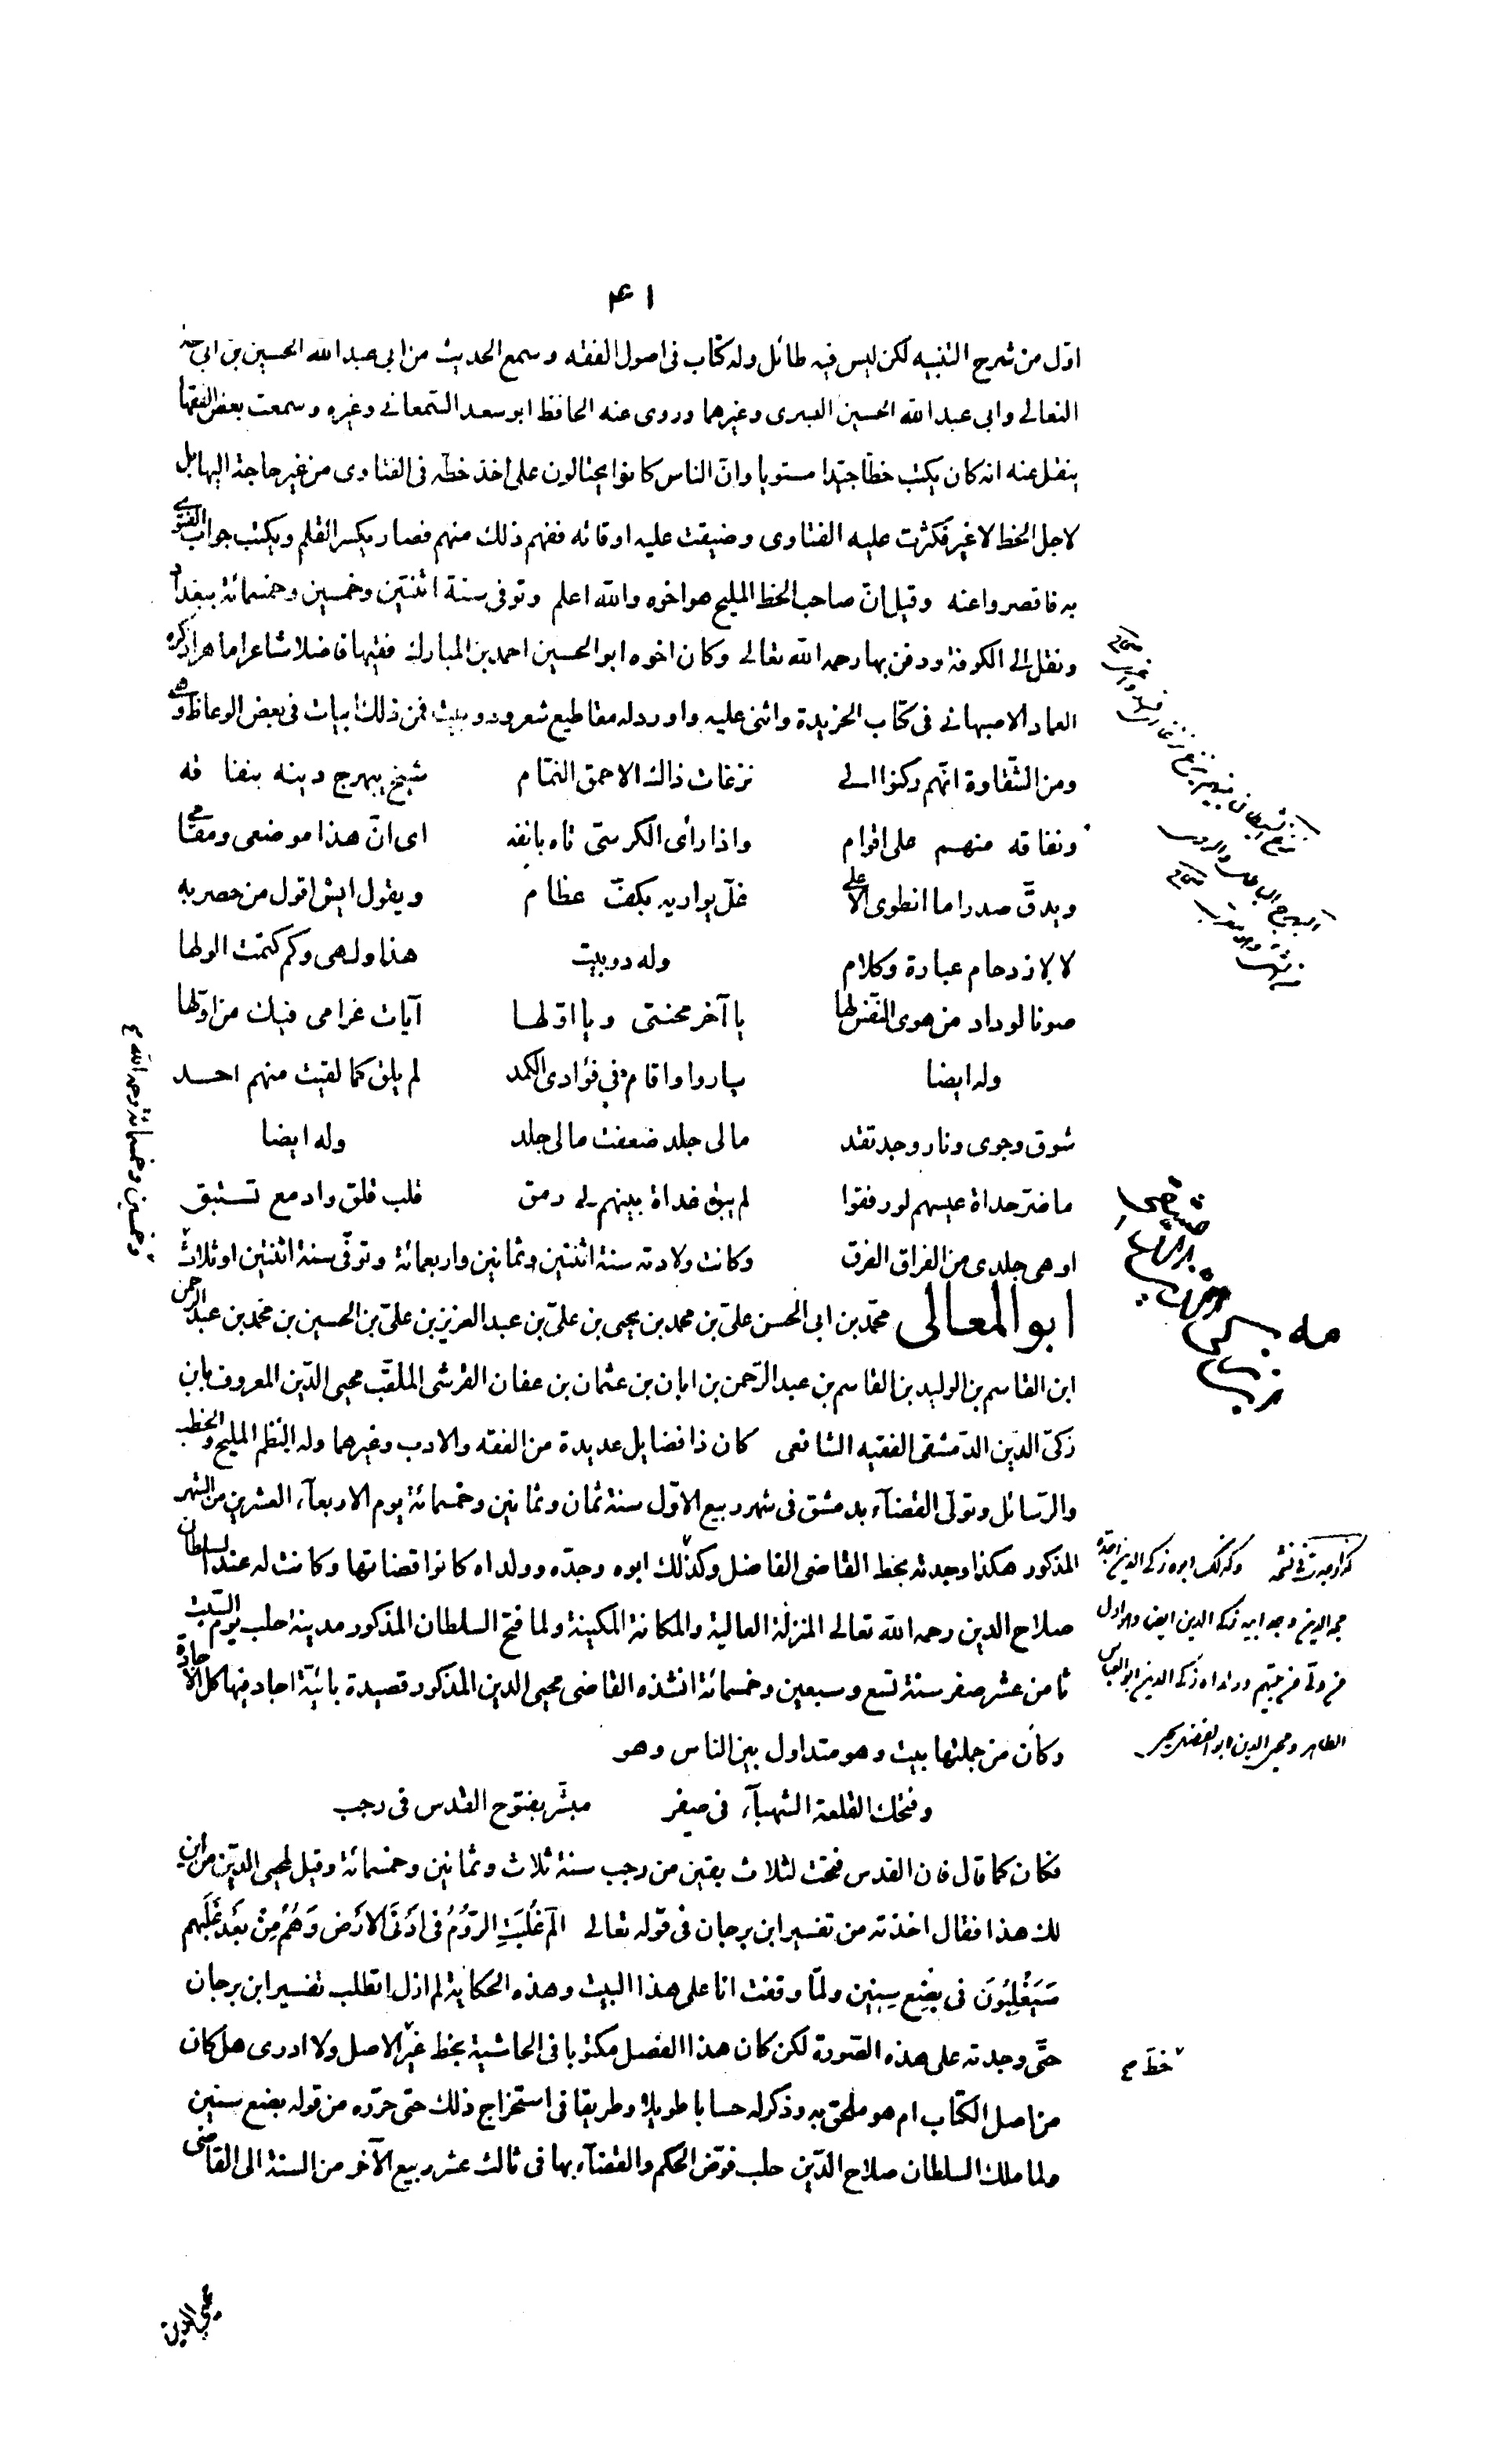 ۴۱
اوّل من شرح التنبيه لكن ليس فيه طائل وله كتاب فى اصول الفقه وسمع الحديث من ابى عبد الله الحسين بن ابى
النعالى وابى عبد الله الحسين البسرى وغيرهما وروى عنه الحافظ ابو سعد السّمعانى وغيره وسمعت بعض الفقها
ينقل عنه انه كان يكتب خطّا جيّدا مستويا وانّ الناس كانوا يحتالون على اخذ خطّه فى الفتاوى من غير حاجة اليها بل
لاجل الخط لا غير فكثرت عليه الفتاوى وضيقت عليه اوقاته ففهم ذلك منهم فصار يكسر القلم ويكتب جواب الفتوى
به فاقصروا عنه وقيل انّ صاحب الخط المليح هو اخوه والله اعلم وتوفى سنة اثنتين وخمسين وخمسمائة ببغداد
ونقل الى الكوفة ودفن بها رحمه الله تعالى وكان اخوه ابو الحسين احمد بن المبارك فقيها فاضلا شاعرا ماهرا ذكره
العماد الاصبهانى فى كتاب الخريدة واثنى عليه واورد له مقاطيع شعر ودوبيت فمن ذلك ابيات فى بعض الوعاظ وهى
ومن الشّقاوة انّهم ركنوا الى نزغات ذاك الاحمق التمّام شيخ يبهرج دينه بنفاقه
ونفاقه منهم على اقوام واذا رأى الكرسىّ تاه بانفه اى انّ هذا موضعى ومقامى
ويدقّ صدرا ما انطوى الا على غلّ يواريه بكفّ عظام ويقول ايش اقول من حصر به
لا لازدحام عبارة وكلام وله دوبيت هذا ولهى وكم كتمت الولها
صونا لوداد من هوى النّفس لها يا آخر محنتى ويا اوّلها آيات غرامى فيك من اوّلها
وله ايضا ساروا واقام فى فؤادى الكمد لم يلق كما لقيت منهم احد
شوق وجوى ونار وجد تقد ما لى جلد ضعفت ما لى جلد وله ايضا
ما ضرّ حداة عيسهم لو رفقوا لم يبق غداة بينهم لى رمق قلب قلق وادمع تستبق
اوهى جلدى من الفراق الفرق وكانت ولادته سنة اثنتين وثمانين واربعمائة وتوفّى سنة اثنتين او ثلاث
وخمسين وخمسمائة رحمه الله
ابو المعالى محمّد بن ابى الحسن علىّ بن محمد بن يحيى بن علىّ بن عبد العزيز بن علىّ بن الحسين بن محمّد بن عبد الرحمن
ابن القاسم بن الوليد بن القاسم بن عبد الرّحمن بن ابان بن عثمان بن عفان القرشى الملقّب محيى الدّين المعروف بابن
زكىّ الدّين الدّمشقى الفقيه الشافعى كان ذا فضايل عديدة من الفقه والادب وغيرهما وله النّظم المليح والخطب
والرّسائل وتولّى القضآء بدمشق فى شهر ربيع الاوّل سنة ثمان وثمانين وخمسمائة يوم الاربعآء العشرين من الشهر
المذكور هكذا وجدته بخط القاضى الفاضل وكذلك ابوه وجدّه وولداه كانوا قضاتها وكانت له عند السلطان
صلاح الدين رحمه الله تعالى المنزلة العالية والمكانة المكينة ولما فتح السلطان المذكور مدينة حلب يوم السّبت
ثامن عشر صفر سنة تسع وسبعين وخمسمائة انشده القاضى محيى الدين المذكور قصيدة بائيّة اجاد فيها كل الاجادة
وكان من جملتها بيت وهو متداول بين الناس وهو
وفتحك القلعة الشهبآء فى صفر مبشّر بفتوح القدس فى رجب
فكان كما قال فان القدس فتحت لثلاث بقين من رجب سنة ثلاث وثمانين وخمسمائة وقيل لمحيى الدّين من اين
لك هذا فقال اخذته من تفسير ابن برجان فى قوله تعالى الم غُلِبَتِ الرُّومُ فى اَدْنَى الاَرْضِ وَهُمْ مِنْ بَعْدِ غَلَبِهِم
سَيَغْلِبُونَ فى بِضْعِ سِنِين ولمّا وقفت انا على هذا البيت وهذه الحكاية لم ازل اتطلب تفسير ابن برجان
حتّى وجدته على هذه الصّورة لكن كان هذا الفصل مكتوبا فى الحاشية بخط غير الاصل ولا ادرى هل كان
من اصل الكتاب ام هو ملحق به وذكر له حسابا طويلا وطريقا فى استخراج ذلك حتى حرّره من قوله بضع سنين
ولما ملك السلطان صلاح الدّين حلب فوّض الحكم والقضآء بها فى ثالث عشر ربيع الآخر من السنة الى القاضى
وكذلك ابوه زكى الدين وجده
مجد الدين وجد ابيه زكى الدين ايضا وهو اول
من ولى من بيتهم وولداه زكى الدين ابو العباس
الطاهر ومحيى الدين ابو الفضل يحيى
خط
محيى الدين